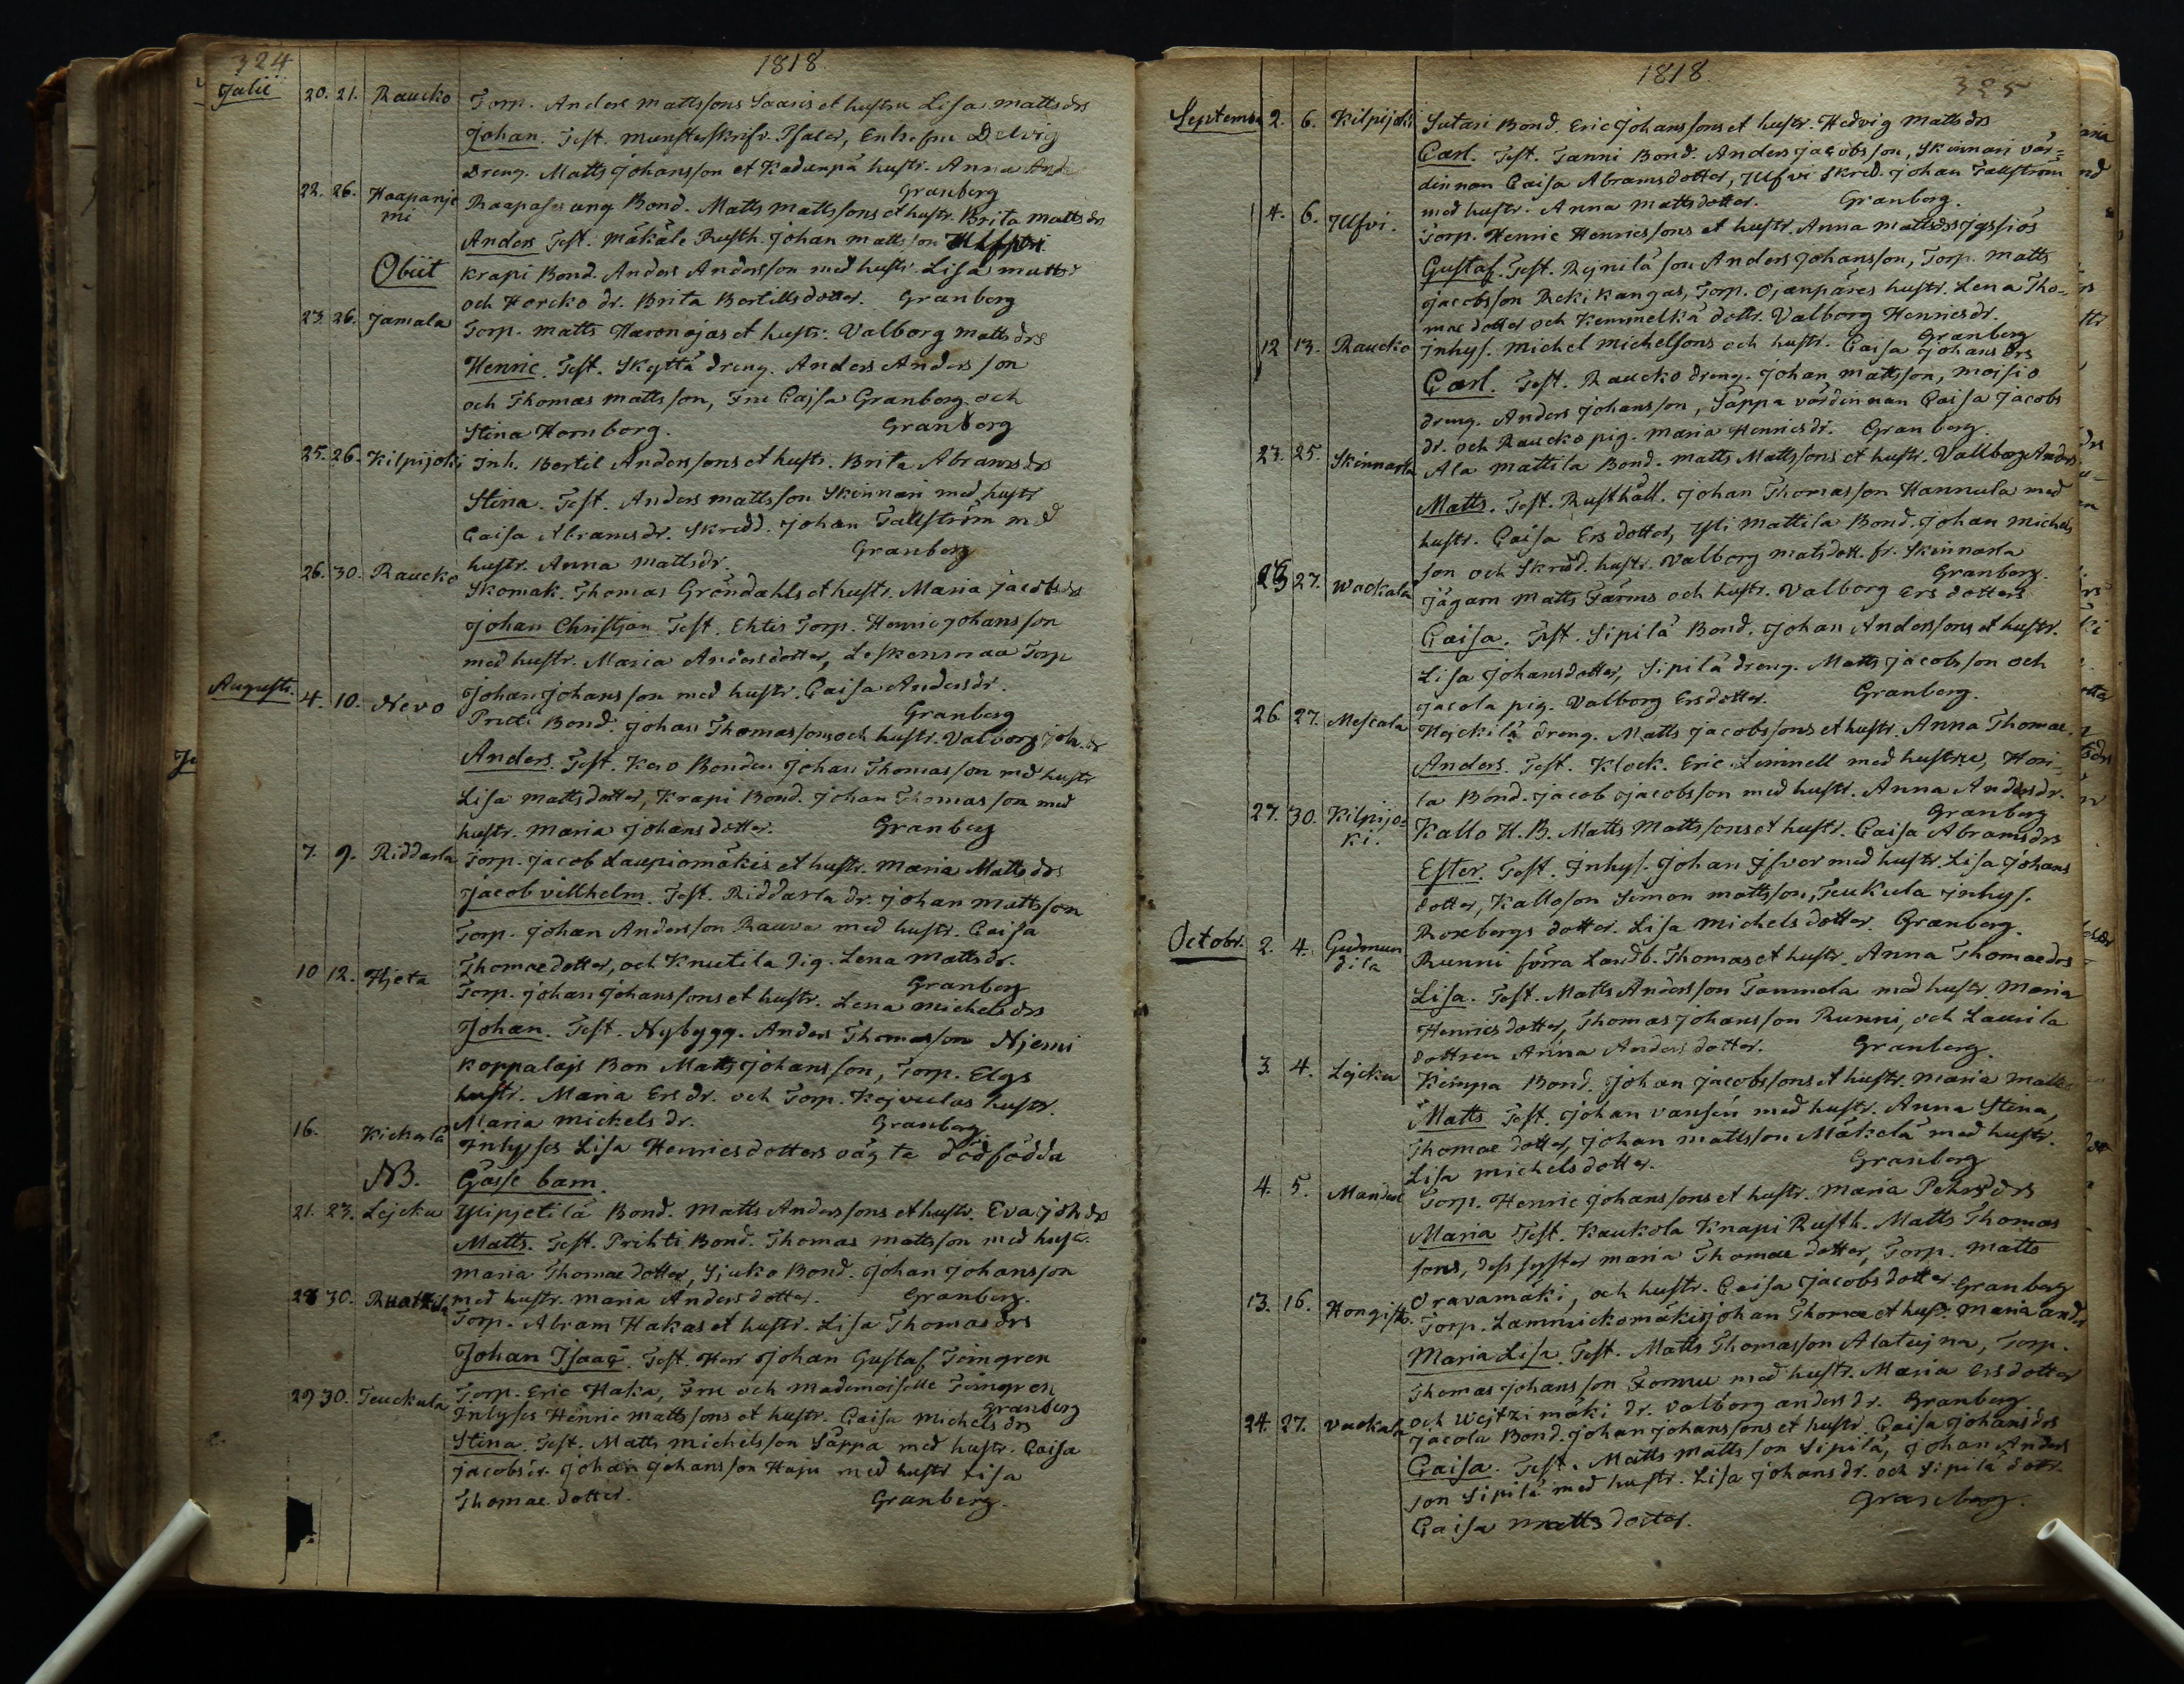 324
1818
Julii
20. 21. Raucko Torp. Anders Mattssons Saaris et hustru Lisa Mattsdrs
Johan. Test. Munsterskrifv. Psaler, Enkefru Delvig
Dreng. Matts Johansson et Kadunpä hustr. Anna And
Granberg
22. 26. Haapanje Raapases ung Bond. Matts Mattssons et hustr. Brita Mattsdrs
mi Anders Test. Mäkäle Rusth. Johan Mattsson
Obiit Krapi Bond. Anders Andersson med hustr. Lisa Mattsd
och Horcko dr. Brita Bertillsdotter. Granberg
23. 26. Jamala Torp. Matts Haronojas et hustr. Valborg Mattsdrs
Henric. Test. Skyttä dreng. Anders Andersson
och Thomas Mattsson, Fru Cajsa Granborg och
Stina Hornborg. Granborg
25. 26. Kilpijoki Inh. Bertil Anderssons et hustr. Brita Abramsdrs
Stina. Test. Anders Mattsson Skinnari med hustr
Caisa Abramsdr. Skredd. Johan Tallström med
hustr. Anna Mattsdr. Granberg
26. 30. Raucko Skomak. Thomas Gröndahls et hustr. Maria Jacobsdrs
Johan Christjan. Test. Ehtis Torp. Henric Johansson
med hustr. Maria Andersdotter, Leskensmaa Torp
Johan Johansson med hustr. Caisa Andersdr.
Granberg
Augusti. 4. 10. Nevo Pretti Bond. Johan Thomassons och hustr. Valborg Joh. dr
Anders. Test. Kero Bonden Johan Thomasson med hustr
Lisa Mattsdotter, Krapi Bond. Johan Thomasson med
hustr. Maria Johansdotter. Granberg
7. 9. Riddarla Torp. Jacob Laupiomäkis et hustr. Maria Mattsdrs
Jacob villhelm. Test. Riddarla dr. Johan Mattsson
Torp. Johan Andersson Rauva med hustr. Caisa
Thomaedotter, och Knutila Pig. Lena Mattsdr.
Granberg
10 12. Hjeta Torp. Johan Johanssons et hustr. Lena Michelsdrs
Johan. Test. Nybygg. Anders Thomasson Njemi
Koppalajs Bon Matts Johansson, Torp. Elgs
hustr. Maria Ersdr. och Torp. Kejvulas hustr.
Maria Mickelsdr. Granberg
16. Kickerlä Inhyses Lisa Henricsdotters oägta dödfödda
NB. Gosse barn.
21. 23. Lejcku Ylipjetilä Bond. Matts Anderssons et hustr. Eva Johdrs
Matts. Test. Prihti Bond. Thomas Mattsson med hust.
Maria Thomaedotter, Sjuko Bond. Johan Johansson
med hustr. Maria Andersdotter. Granberg.
28 30. Torp. Abram Hakas et hustr. Lisa Thomasdrs
Johan Isaac. Test. Herr Johan Gustaf Temgren
Torp. Eric Haka, Fru och Mademoiselle Temgren
Granberg
29 30. Teuckula Inhyses Henric Mattssons et hustr. Caisa Michelsdrs
Stina. Test. Matts Michelsson Säppä med hustr. Caisa
Jacobsdr. Johan Johansson Haju med hustr Lisa
Thomaedotter. Granberg.
1818.
325
Septembr 2. 6. Kilpijoki Sutari Bond. Eric Johanssons et hustr. Hedvig Mattsdrs
Carl. Test. Tanni Bond. Anders Jacobsson, Skinnari vär-
dinnan Caisa Abramsdotter, Ulfvi Skred. Johan Tallström
med hustr. Anna Mattsdotter. Granberg.
4. 6. Ulfvi. Torp. Henric Henricssons et hustr. Anna Mattsdrs
Gustaf. Test. Rejnilä son Anders Johansson, Torp. Matts
Jacobsson Rekikangas, Torp. Ojanpäres hustr. Lena Tho-
maedotter och Kemmelkä dottr. Valborg Henricsdr.
Granberg
12 13. Raucko Inhys. Michel Michelsons och hustr. Caisa Johansdrs
Carl. Test. Raucko dreng. Johan Mattsson, Moisio
dreng. Anders Johansson, Säppä värdinnan Caisa Jacobs
dr. och Raucko pig. Maria Henricsdr. Granberg.
23. 25. Skinnarla Ala Mattila Bond. Matts Mattssons et hustr. Vallborg Anders
Matts. Test. Rusthåll. Johan Thomasson Hannula med
hustr. Caisa Ersdotter, Yli Mattila Bond. Johan Michels
son och Skredd. hustr. Valborg Matsdott. fr. Skinnarla
Granberg.
27. Wackala Jägarn Matts Färms och hustr. Valborg Ersdotters
Caisa. Test. Sipilä Bond. Johan Anderssons et hustr.
Lisa Johansdotter, Sipilä dreng. Matts Jacobsson och
Jacola pig. Valborg Ersdotter. Granberg.
26 27. Mescala Hejckilä dreng. Matts Jacobssons et hustr. Anna Thomae
Anders. Test. Klock. Eric Limnell med hustru, Hori-
la Bond. Jacob Jacobsson med hustr. Anna Andersdr.
Granberg
27. 30. Kilpijo- Kallo H. B. Matts Mattssons et hustr. Caisa Abramsdrs
ki. Ester. Test. Inhys. Johan Isver med hustr. Lisa Johans
dotter, Kallo son Simon Mattsson, Teukula Inhys.
Roxbergs dotter. Lisa Michelsdotter. Granberg.
Octobr. 2. 4. Gudmun Runni förra Landb. Thomas et hustr. Anna Thomaedrs
dila Lisa. Test. Matts Andersson Tammela med hustr. Maria
Henricsdotter, Thomas Johansson Runni, och Laurila
dottren Anna Andersdotter. Granberg.
3. 4. Lejcku Kimpa Bond. Johan Jacobssons et hustr. Maria Matts
Matts Test. Johan Vansén med hustr. Anna Stina,
Thomaedotter, Johan Mattsson Mäkelä med hustr.
Lisa Michelsdotter. Granberg
4. 5. Mandere Torp. Henric Johanssons et hustr. Maria Pehrsdrs
Maria Test. Kaukola Knapi Rusth. Matts Thomas
sons, dess syster Maria Thomaedotter, Torp. Matts
Oravamäki, och hustr. Caisa Jacobsdotter. Granberg
13. 16. Hongisto. Torp. Lammickomäkis Johan Thomae et hustr. Maria andr
Maria Lisa. Test. Matts Thomasson Alatujna, Torp.
Thomas Johansson Tommu med hustr. Maria Ersdotter
och Wejtzimäki dr. Valborg andersdr. Granberg.
24. 27. Vackala Jacola Bond. Johan Johanssons et hustr. Caisa Johansdrs
Caisa. Test. Matts Mattsson Sipilä, Johan Anders
son Sipilä med hustr. Lisa Johansdr. och Sipilä dottr.
Caisa Mattsdotter. Granberg.